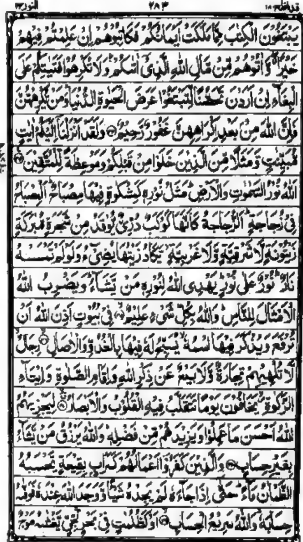 قد افلح ١٨ ٢٨٣ النور ٢٤
يبتغون الكتب مما ملكت ايمانكم فكاتبوهم ان علمتم فيهم
خيرا واتوهم من مال الله الذى اتىكم ولا تكرهوا فتيتكم على
البغاء ان اردن تحصنا لتبتغوا عرض الحيوة الدنيا ومن يكرههن
فان الله من بعد اكراههن غفور رحيم ولقد انزلنا اليكم ايت
مبينت ومثلا من الذين خلوا من قبلكم وموعظة للمتقين
الله نور السموت والارض مثل نوره كمشكوة فيها مصباح المصباح
فى زجاجة الزجاجة كانها كوكب درى يوقد من شجرة مبركة
زيتونة لا شرقية ولا غربية يكاد زيتها يضىء ولو لم تمسسه
نار نور على نور يهدى الله لنوره من يشاء ويضرب الله
الامثال للناس والله بكل شىء عليم فى بيوت اذن الله ان
ترفع ويذكر فيها اسمه يسبح له فيها بالغدو والاصال رجال
لا تلهيهم تجارة ولا بيع عن ذكر الله واقام الصلوة وايتاء
الزكوة يخافون يوما تتقلب فيه القلوب والابصار ليجزيهم
الله احسن ما عملوا ويزيدهم من فضله والله يرزق من يشاء
بغير حساب والذين كفروا اعمالهم كسراب بقيعة يحسبه
الظمان ماء حتى اذا جاءه لم يجده شيا ووجد الله عنده فوفىه
حسابه والله سريع الحساب او كظلمت فى بحر لجى يغشىه موج